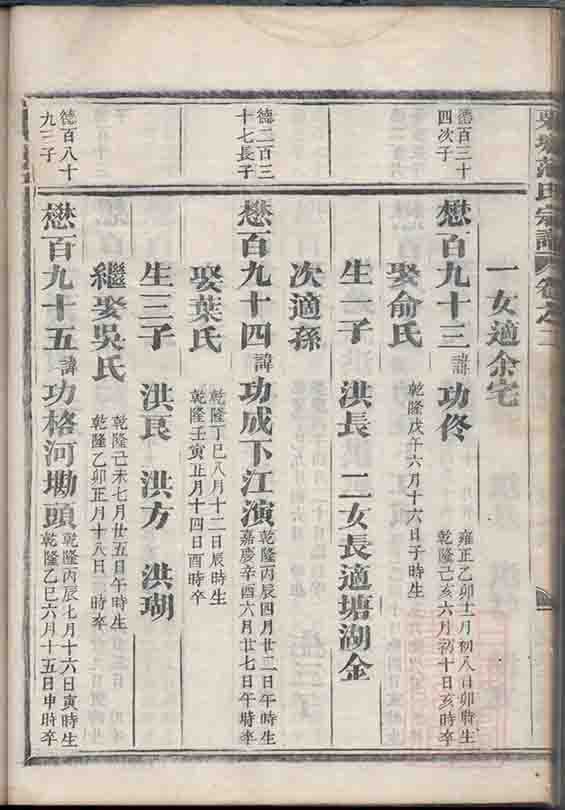 范氏宗譜
卷之二
一女適余宅
德百三十
四次子
懋百九十三
諱
功佟
雍正乙卯十一月初八日卯時生
乾隆己亥六月初十日亥時卒
娶俞氏
乾隆戊午六月十六日子時生
生一子 洪長 二女長適塘湖金
次適孫
德二百三
十七長子
懋百九十四
諱
功成下江演
乾隆丙辰四月廿二日午時生
嘉慶辛酉六月廿七日午時卒
娶葉氏
乾隆丁巳八月十二日辰時生
乾隆壬寅正月十四日酉時卒
生三子 洪良 洪方 洪瑚
繼娶吳氏
乾隆己未七月廿五日午時生
乾隆乙卯正月十八日三時卒
德百八十
九三子
懋百九十五
諱
功格河墈頭
乾隆丙辰七月十六日寅時生
乾隆乙巳六月十五日申時卒